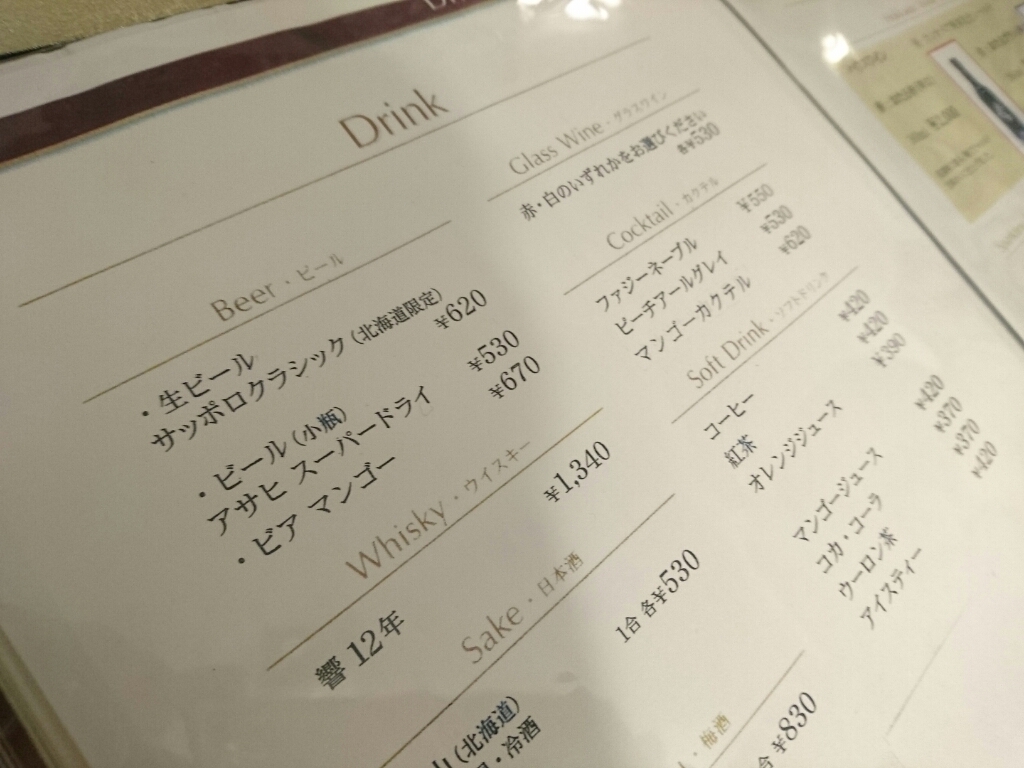 Drink
Beer・ビール
・生ビール
サッポロクラシック（北海道限定）
¥620
・ビール（小瓶）
アサヒ スーパードライ
¥530
・ビア マンゴー
¥670
Whisky・ウイスキー
響 12年
¥1,340
Sake・日本酒
1合 各¥530
（北海道）
・冷酒
梅酒
合 ¥830
Glass Wine・グラスワイン
赤・白のいずれかをお選びください
各¥530
Cocktail・カクテル
ファジーネーブル ¥550
ピーチアールグレイ ¥530
マンゴーカクテル ¥620
Soft Drink・ソフトドリンク
コーヒー ¥420
紅茶 ¥420
オレンジジュース ¥390
マンゴージュース ¥420
コカ・コーラ ¥370
ウーロン茶 ¥370
アイスティー ¥420